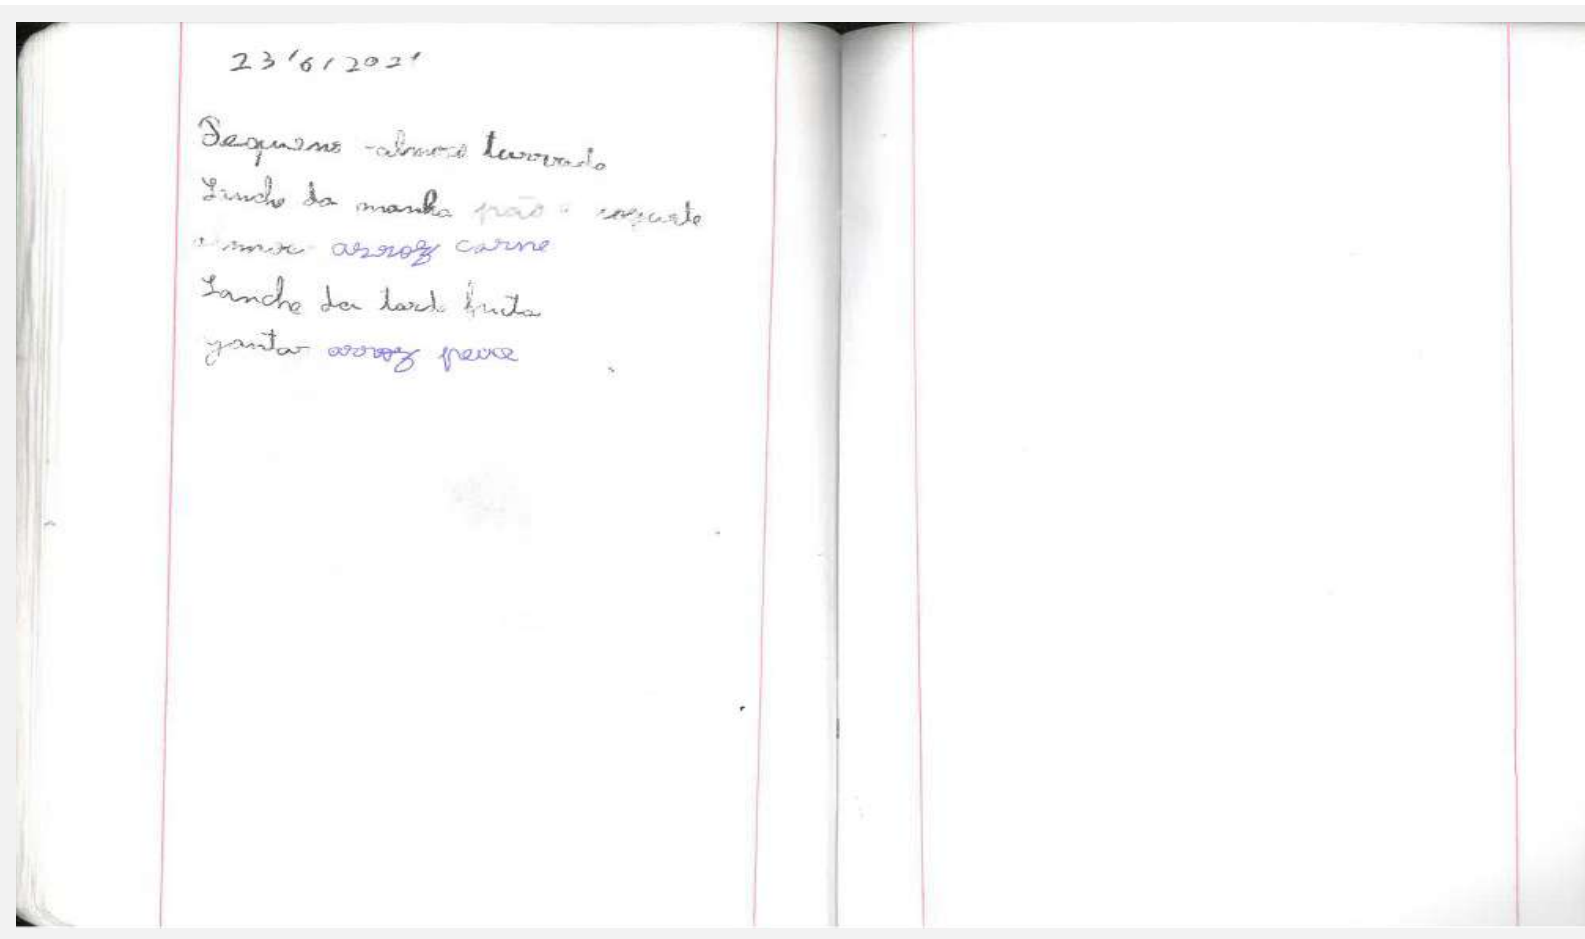 23/6/2021
Pequeno -almoço torrada
Lanche da manha pão e iogurte
almoço arroz carne
Lanche da tarde fruta
yantar arroz peixe